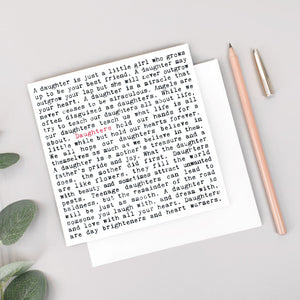 A daughter is just a little girl who grows
up to be your best friend. A daughter may
outgrow your lap but she will never outgrow
your heart. A daughter is a miracle that
never ceases to be miraculous. Angels are
often disguised as daughters. While we
try to teach our daughters all about life,
our daughters teach us what life is all
about. Daughters hold our hands for a
little while but hold our hearts forever.
We all hope our daughters believe in
themselves as much as we believe in them.
A daughter is a mother's treasure and a
father's pride and joy. What the daughter
does, the mother did first. Daughters
are like flowers, they fill the world
with beauty and sometimes attract unwanted
pests. Teenage daughters can lead to
baldness, but the remainder of the road
will be just as smooth. A daughter is
someone you laugh with, and dream with,
and love with all your heart. Daughters
are day brighteners and heart warmers.